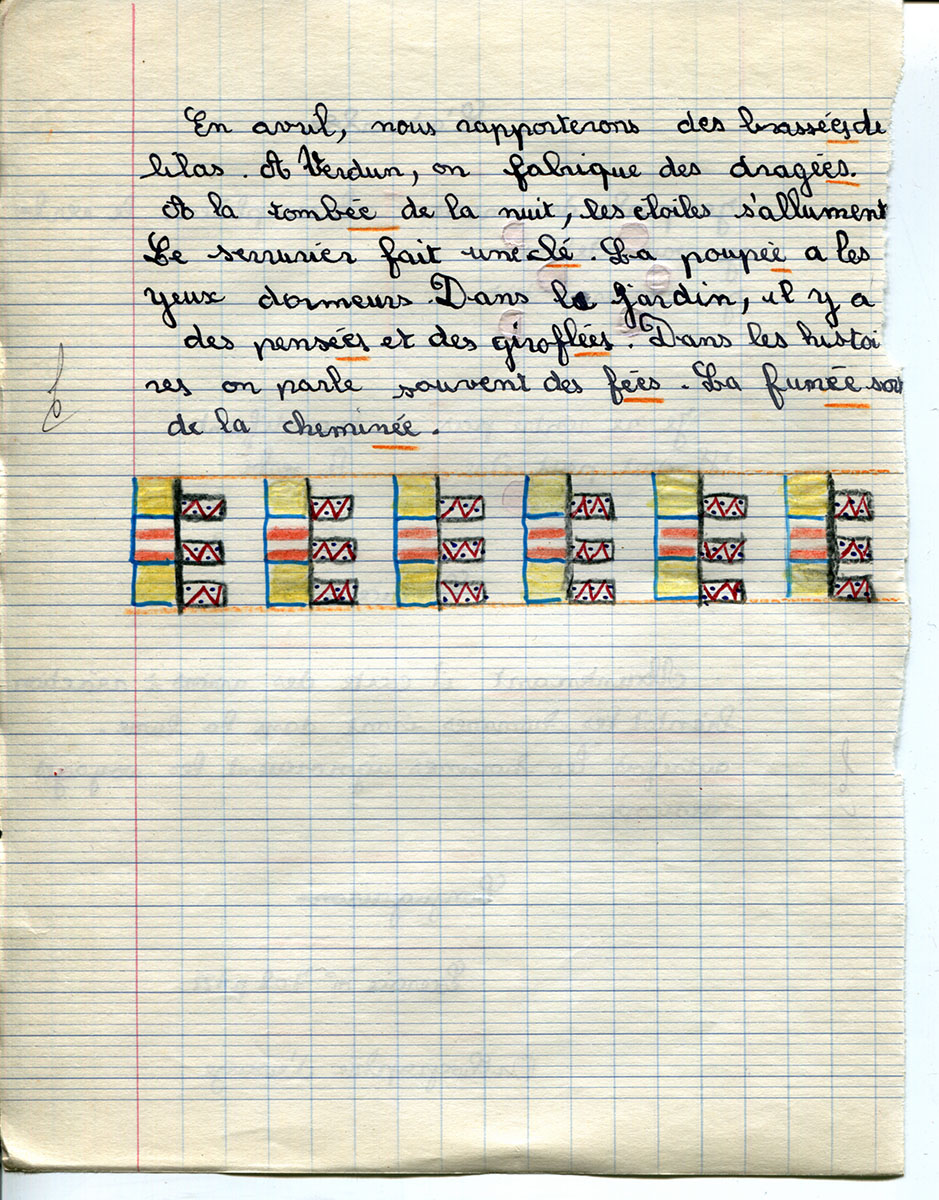 En avril, nous rapporterons des brassées de
lilas. A Verdun, on fabrique des dragées.
A la tombée de la nuit, les étoiles s'allument
Le serrurier fait une clé. La poupée a les
yeux dormeurs. Dans le jardin, il y a
des pensées et des giroflées. Dans les histoi
res on parle souvent des fées. La fumée sort
de la cheminée.